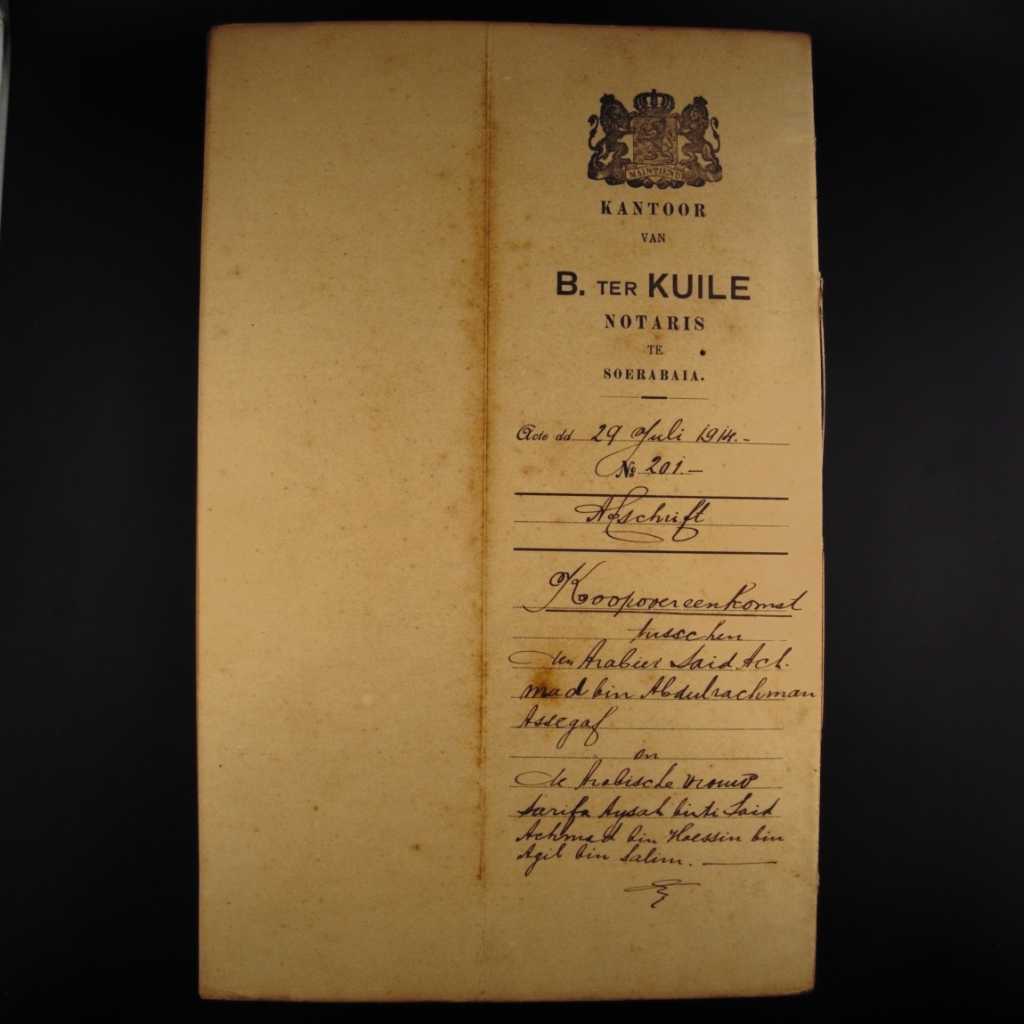 KANTOOR
VAN
B. TER KUILE
NOTARIS
TE
SOERABAIA.
Acte dd 29 Juli 1914.-
No 201.-
Afschrift
Koopovereenkomst
tusschen
den Arabier Said Ach-
mad bin Abdulrachman
Assegaf
en
de Arabische vrouw
Sarifa Aysah binti Said
Achmad bin Hoessin bin
Agil bin Salim.